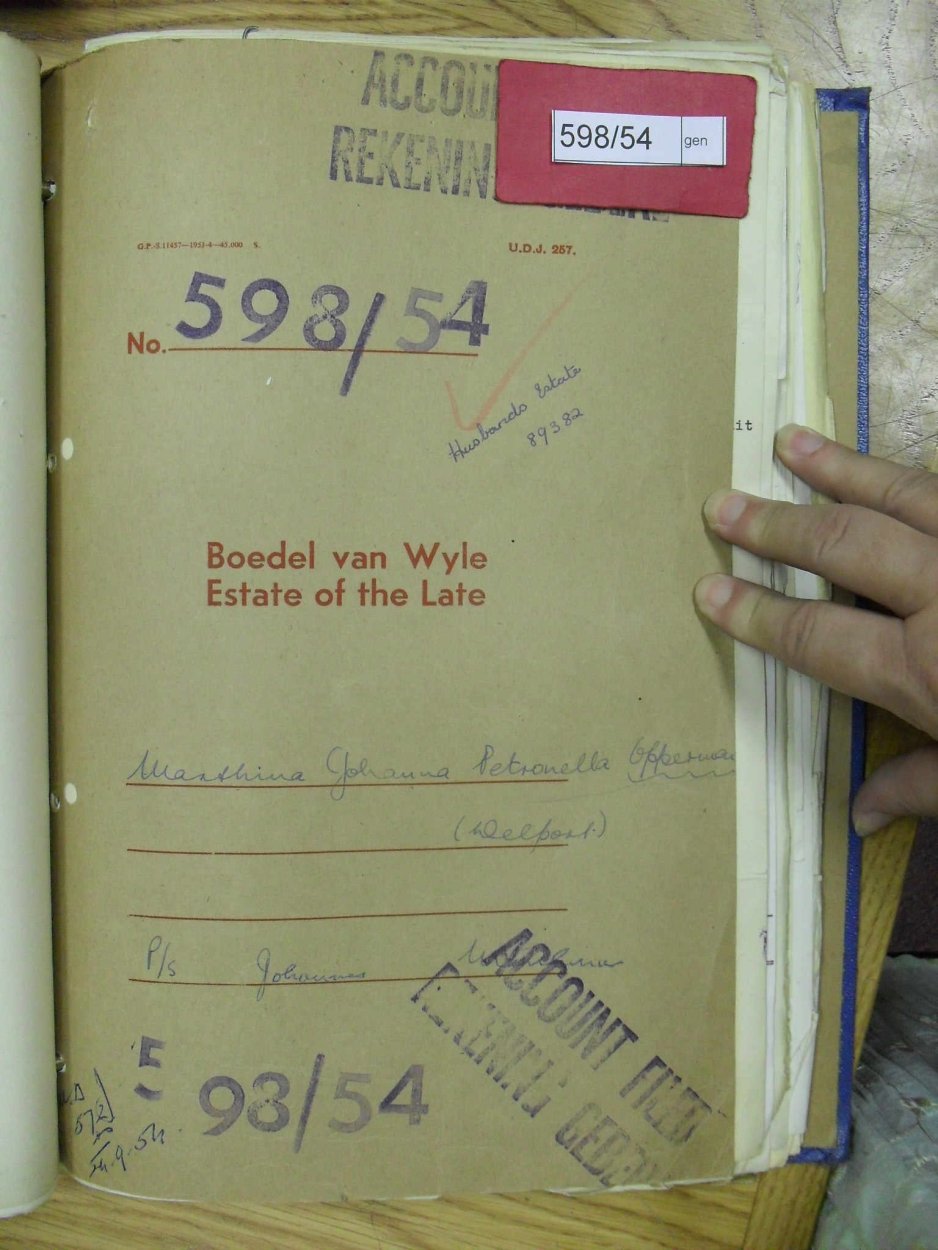 ACCOU
REKENIN
598/54 gen
G.P.-S.11457—1953-4—45,000 S.
U.D.J. 257.
No. 598/54
Husbands Estate
89382
it
Boedel van Wyle
Estate of the Late
Marthina Johanna Petronella Opperman
(Delport)
P/s Johannes
ACCOUNT FILED
REKENING
598/54